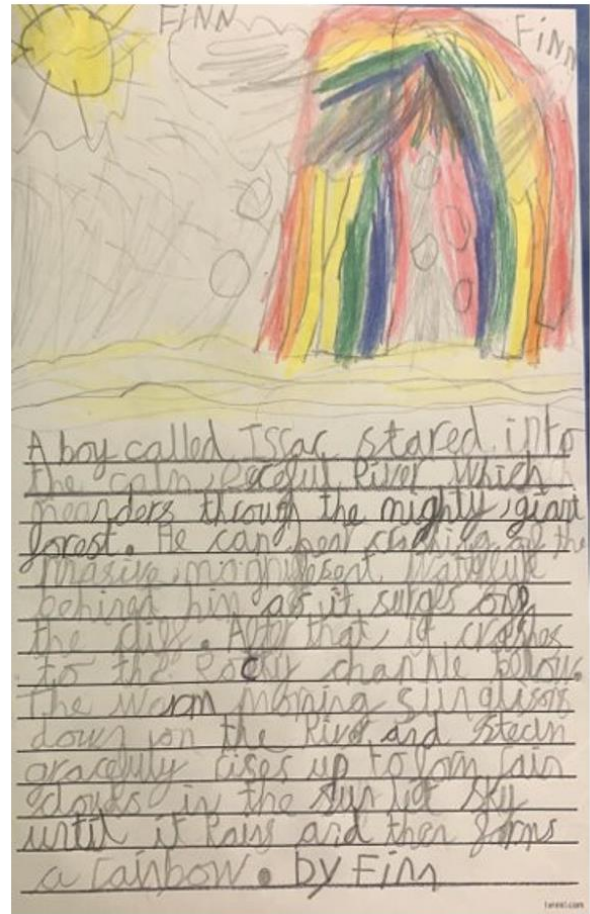 FINN
FINN
A boy called Issac stared into
the calm, Peaceful River which
meanders through the mighty, giant
forest. He can hear crashing of the
masive, magnifesent waterfule
behined him as it surges off
the cliff. After that, it crashes
to the Rocky channle bellow.
The warm morning sun
down on the River and steem
gracefuly rises up to form rain
clouds in the sun lit sky
until it Rains and then forms
a rainbow. by Finn